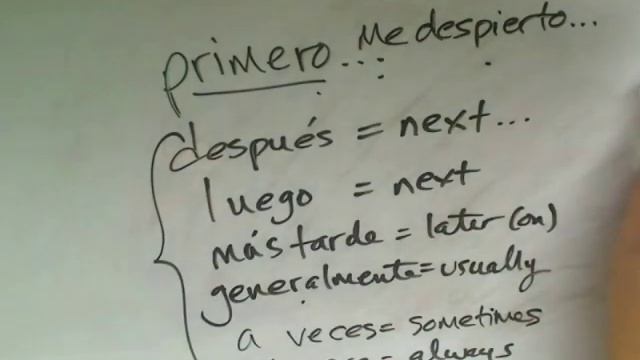 primero... Me despierto...
después = next...
luego = next
más tarde = later (on)
generalmente = usually
a veces = sometimes
= always